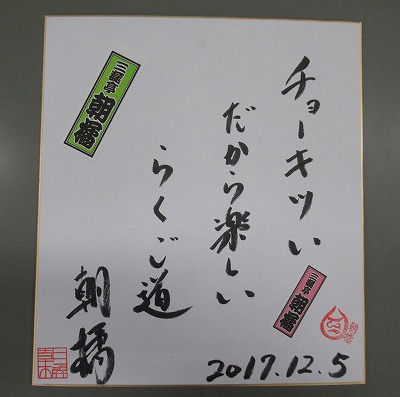 チョーキツい
だから楽しい
らくご道
朝橘
2017.12.5
三遊亭 朝橘
三遊亭 朝橘